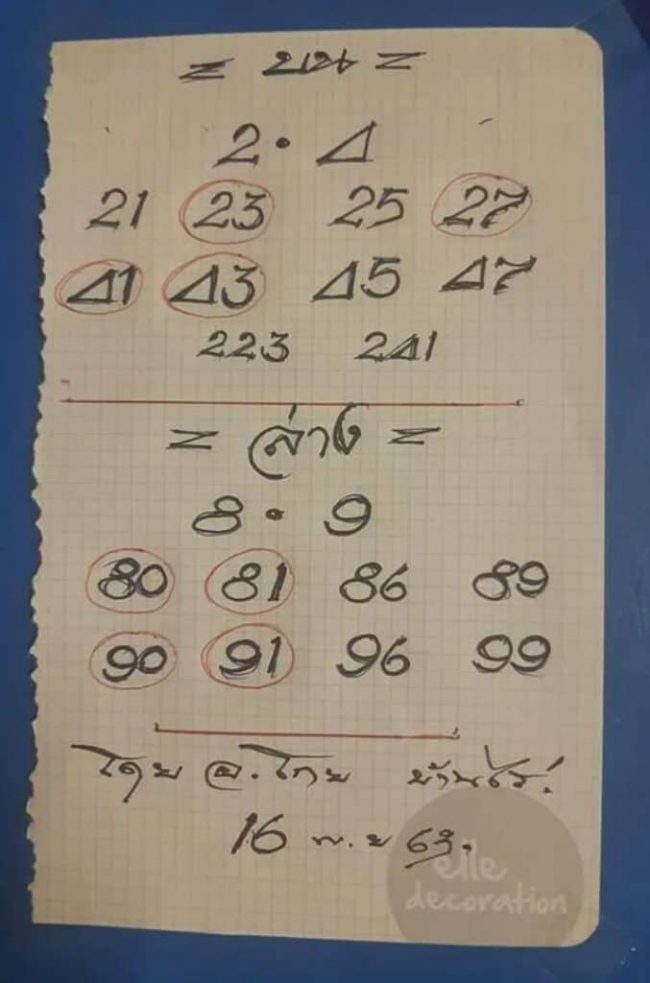 = บน =
2 · 4
21 23 25 27
41 43 45 47
223 241
= ล่าง =
8 · 9
80 81 86 89
90 91 96 99
โดย อ.โกย บ้านไร่
16 พ.ย ๖๓.
elle
decoration